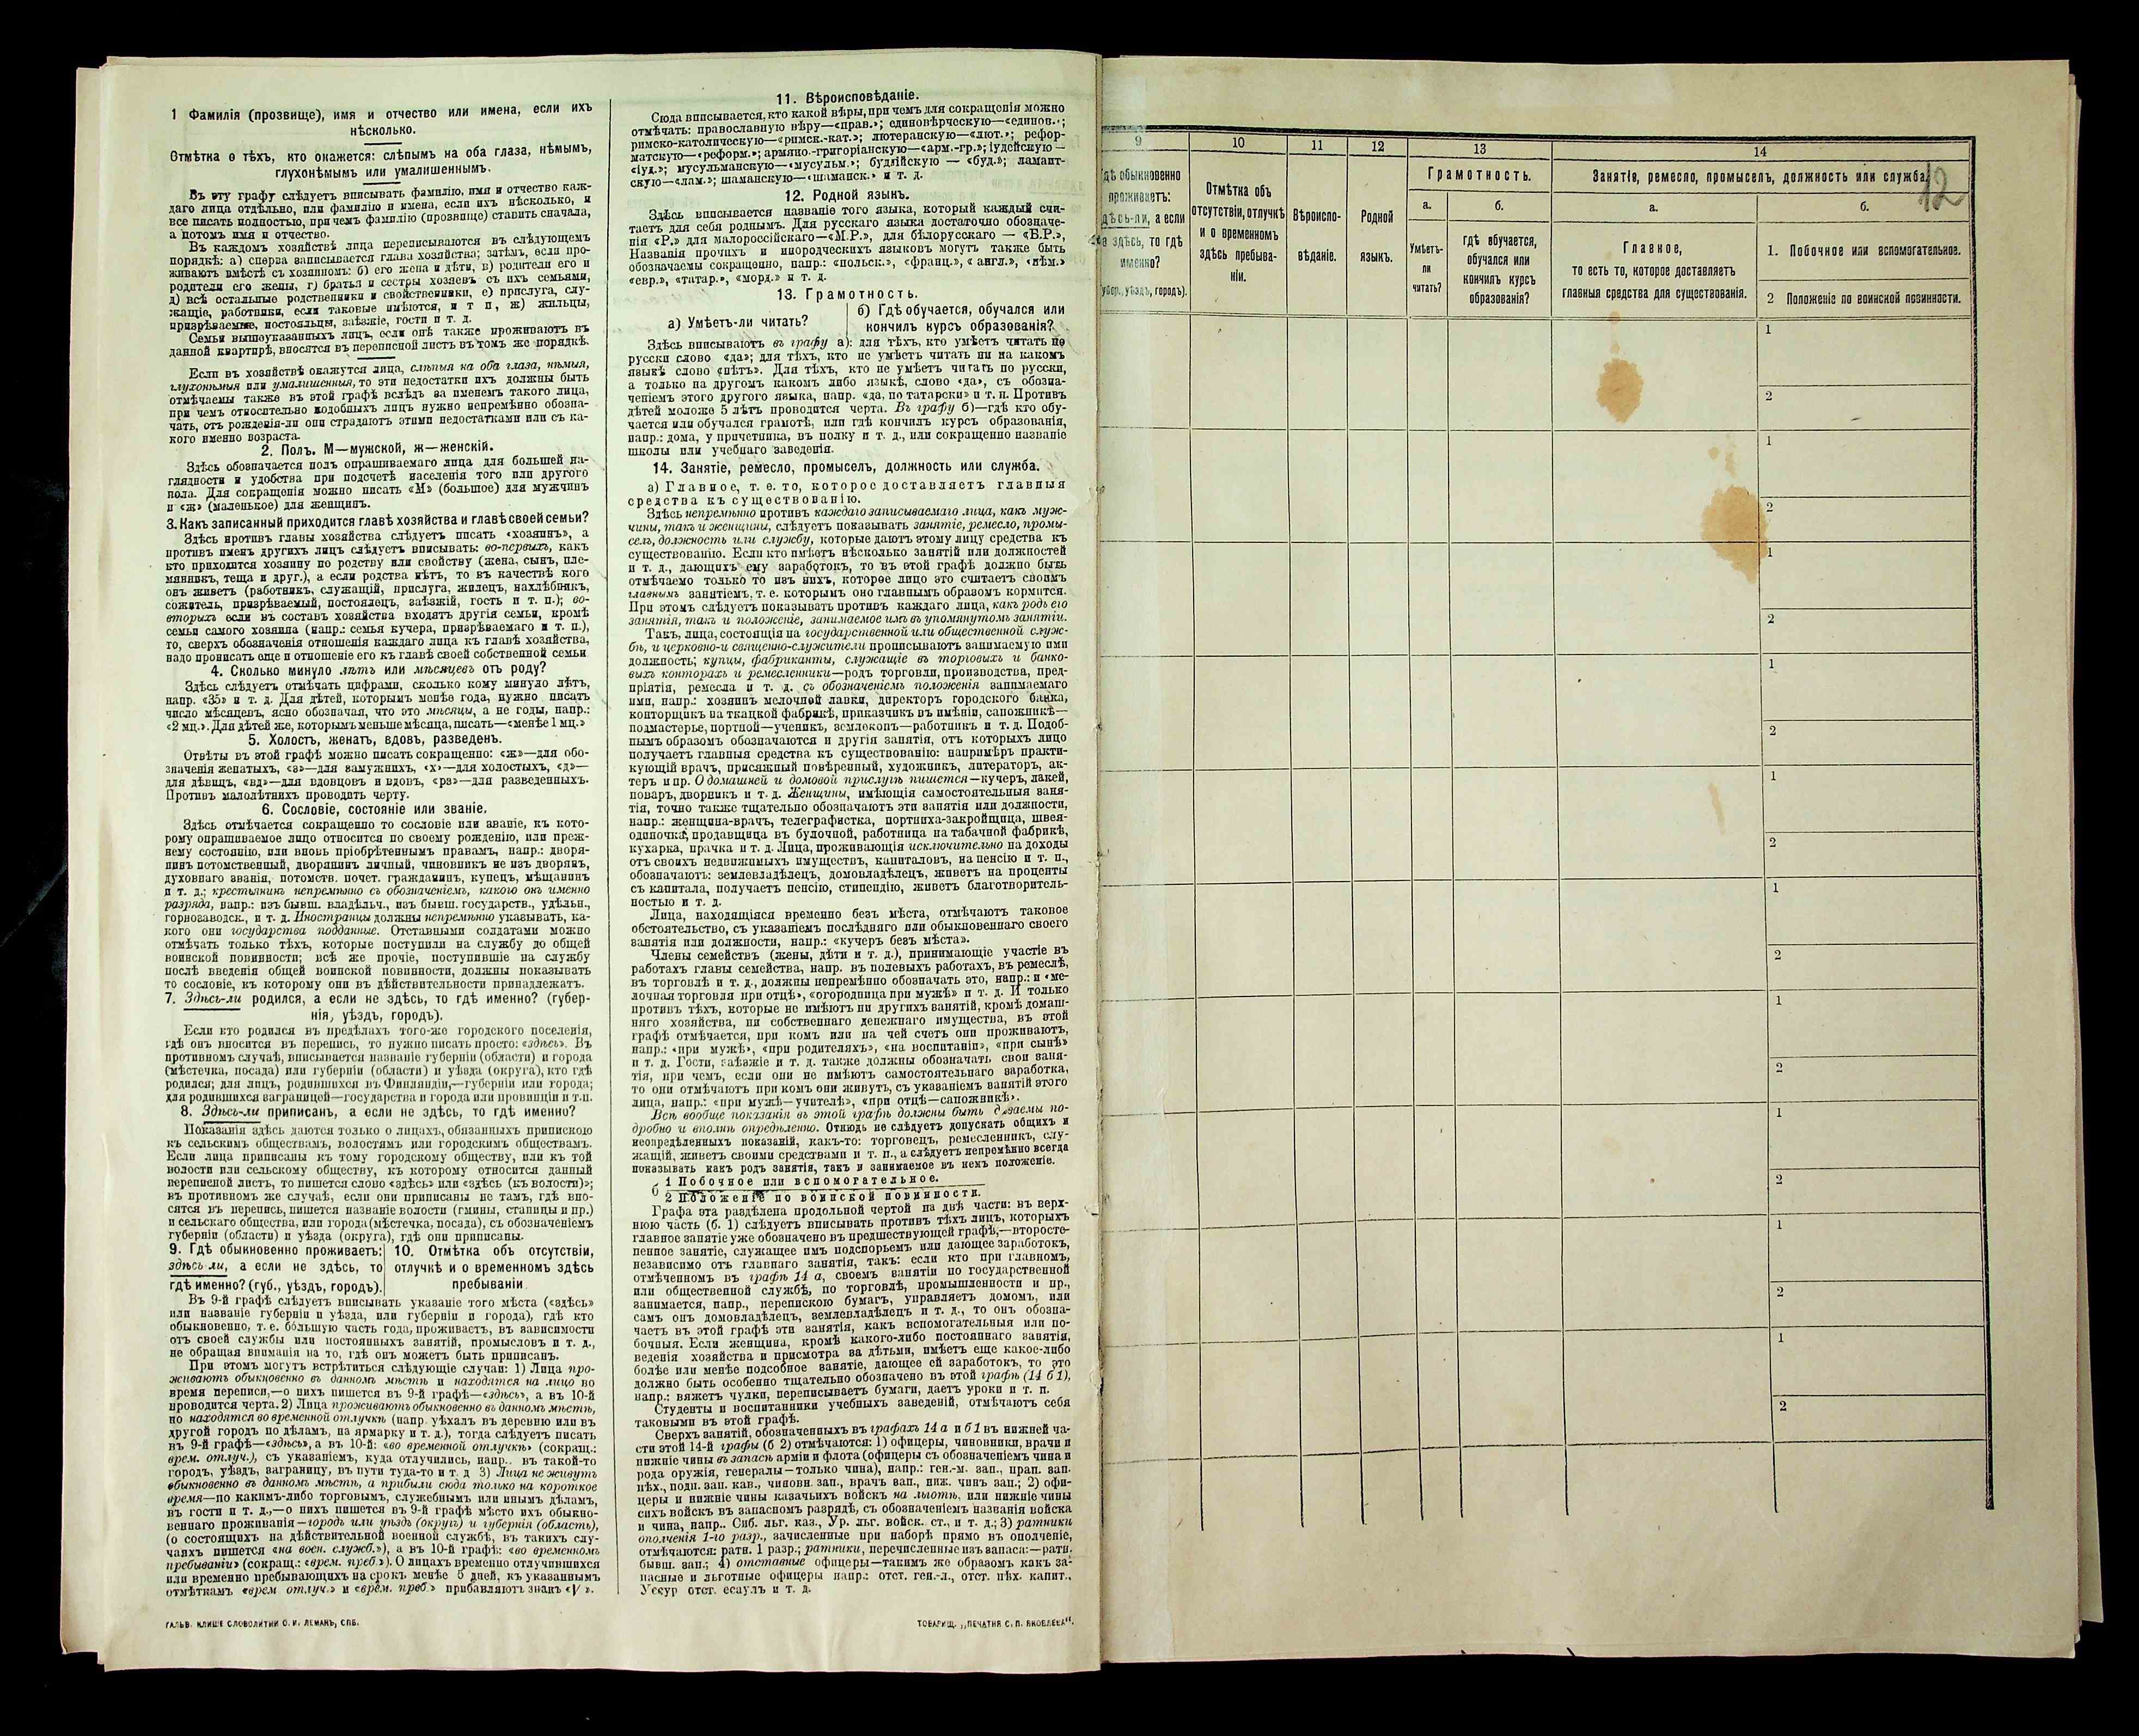 1 Фамилія (прозвище), имя и отчество или имена, если ихъ
нѣсколько.
Отмѣтка о тѣхъ, кто окажется: слѣпымъ на оба глаза, нѣмымъ,
глухонѣмымъ или умалишеннымъ.
Въ эту графу слѣдуетъ вписывать фамилію, имя и отчество каж-
даго лица отдѣльно, или фамилію и имена, если ихъ нѣсколько, и
все писать полностью, при чемъ фамилію (прозвище) ставить сначала,
а потомъ имя и отчество.
Въ каждомъ хозяйствѣ лица переписываются въ слѣдующемъ
порядкѣ: а) сперва записывается глава хозяйства; затѣмъ, если про-
живаютъ вмѣстѣ съ хозяиномъ: б) его жена и дѣти, в) родители его и
родители его жены, г) братья и сестры хозяевъ съ ихъ семьями,
д) всѣ остальные родственники и свойственники, е) прислуга, слу-
жащіе, работники, если таковые имѣются, и т п, ж) жильцы,
призрѣваемые, постояльцы, заѣзжіе, гости и т. д.
Семьи вышеуказанныхъ лицъ, если онѣ также проживаютъ въ
данной квартирѣ, вносятся въ переписной листъ въ томъ же порядкѣ.
Если въ хозяйствѣ окажутся лица, слѣпыя на оба глаза, нѣмыя,
глухонѣмыя или умалишенныя, то эти недостатки ихъ должны быть
отмѣчаемы также въ этой графѣ вслѣдъ за именемъ такого лица,
при чемъ относительно подобныхъ лицъ нужно непремѣнно обозна-
чать, отъ рожденія-ли они страдаютъ этими недостатками или съ ка-
кого именно возраста.
2. Полъ. М—мужской, ж—женскій.
Здѣсь обозначается полъ опрашиваемаго лица для большей на-
глядности и удобства при подсчетѣ населенія того или другого
пола. Для сокращенія можно писать «М» (большое) для мужчинъ
и «ж» (маленькое) для женщинъ.
3. Какъ записанный приходится главѣ хозяйства и главѣ своей семьи?
Здѣсь противъ главы хозяйства слѣдуетъ писать «хозяинъ», а
противъ именъ другихъ лицъ слѣдуетъ вписывать: во-первыхъ, какъ
кто приходится хозяину по родству или свойству (жена, сынъ, пле-
мянникъ, теща и друг.), а если родства нѣтъ, то въ качествѣ кого
онъ живетъ (работникъ, служащій, прислуга, жилецъ, нахлѣбникъ,
сожитель, призрѣваемый, постоялецъ, заѣзжій, гость и т. п.); во-
вторыхъ если въ составъ хозяйства входятъ другія семьи, кромѣ
семьи самого хозяина (напр.: семья кучера, призрѣваемаго и т. п.),
то, сверхъ обозначенія отношенія каждаго лица къ главѣ хозяйства,
надо прописать еще и отношеніе его къ главѣ своей собственной семьи
4. Сколько минуло лѣтъ или мѣсяцевъ отъ роду?
Здѣсь слѣдуетъ отмѣчать цифрами, сколько кому минуло лѣтъ,
напр. «35» и т. д. Для дѣтей, которымъ менѣе года, нужно писать
число мѣсяцевъ, ясно обозначая, что это мѣсяцы, а не годы, напр.:
«2 мц.». Для дѣтей же, которымъ меньше мѣсяца, писать—«менѣе 1 мц.»
5. Холостъ, женатъ, вдовъ, разведенъ.
Отвѣты въ этой графѣ можно писать сокращенно: «ж»—для обо-
значенія женатыхъ, «з»—для замужнихъ, «х»—для холостыхъ, «д»—
для дѣвицъ, «вд»—для вдовцовъ и вдовъ, «рз»—для разведенныхъ.
Противъ малолѣтнихъ проводить черту.
6. Сословіе, состояніе или званіе.
Здѣсь отмѣчается сокращенно то сословіе или званіе, къ кото-
рому опрашиваемое лицо относится по своему рожденію, или преж-
нему состоянію, или вновь пріобрѣтеннымъ правамъ, напр.: дворя-
нинъ потомственный, дворянинъ личный, чиновникъ не изъ дворянъ,
духовнаго званія, потомств. почет. гражданинъ, купецъ, мѣщанинъ
и т. д.; крестьянинъ непремѣнно съ обозначеніемъ, какого онъ именно
разряда, напр.: изъ бывш. владѣльч., изъ бывш. государств., удѣльн.,
горнозаводск., и т. д. Иностранцы должны непремѣнно указывать, ка-
кого они государства подданные. Отставными солдатами можно
отмѣчать только тѣхъ, которые поступили на службу до общей
воинской повинности; всѣ же прочіе, поступившіе на службу
послѣ введенія общей воинской повинности, должны показывать
то сословіе, къ которому они въ дѣйствительности принадлежатъ.
7. Здѣсь-ли родился, а если не здѣсь, то гдѣ именно? (губер-
нія, уѣздъ, городъ).
Если кто родился въ предѣлахъ того-же городского поселенія,
гдѣ онъ вносится въ перепись, то нужно писать просто: «здѣсь». Въ
противномъ случаѣ, вписывается названіе губерніи (области) и города
(мѣстечка, посада) или губерніи (области) и уѣзда (округа), кто гдѣ
родился; для лицъ, родившихся въ Финляндіи,—губерніи или города;
для родившихся заграницей—государства и города или провинціи и т.п.
8. Здѣсь-ли приписанъ, а если не здѣсь, то гдѣ именно?
Показанія здѣсь даются только о лицахъ, обязанныхъ припискою
къ сельскимъ обществамъ, волостямъ или городскимъ обществамъ.
Если лица приписаны къ тому городскому обществу, или къ той
волости или сельскому обществу, къ которому относится данный
переписной листъ, то пишется слово «здѣсь» или «здѣсь (къ волости)»;
въ противномъ же случаѣ, если они приписаны не тамъ, гдѣ вно-
сятся въ перепись, пишется названіе волости (гмины, станицы и пр.)
и сельскаго общества, или города (мѣстечка, посада), съ обозначеніемъ
губерніи (области) и уѣзда (округа), гдѣ они приписаны.
9. Гдѣ обыкновенно проживаетъ:
здѣсь ли, а если не здѣсь, то
гдѣ именно? (губ., уѣздъ, городъ).
10. Отмѣтка объ отсутствіи,
отлучкѣ и о временномъ здѣсь
пребываніи.
Въ 9-й графѣ слѣдуетъ вписывать указаніе того мѣста («здѣсь»
или названіе губерніи и уѣзда, или губерніи и города), гдѣ кто
обыкновенно, т. е. бóльшую часть года, проживаетъ, въ зависимости
отъ своей службы или постоянныхъ занятій, промысловъ и т. д.,
не обращая вниманія на то, гдѣ онъ можетъ быть приписанъ.
При этомъ могутъ встрѣтиться слѣдующіе случаи: 1) Лица про-
живаютъ обыкновенно въ данномъ мѣстѣ и находятся на лицо во
время переписи,—о нихъ пишется въ 9-й графѣ—«здѣсь», а въ 10-й
проводится черта. 2) Лица проживаютъ обыкновенно въ данномъ мѣстѣ,
но находятся во временной отлучкѣ (напр. уѣхалъ въ деревню или въ
другой городъ по дѣламъ, на ярмарку и т. д.), тогда слѣдуетъ писать
въ 9-й графѣ—«здѣсь», а въ 10-й: «во временной отлучкѣ» (сокращ.:
врем. отлуч.), съ указаніемъ, куда отлучились, напр.. въ такой-то
городъ, уѣздъ, заграницу, въ пути туда-то и т. д 3) Лица не живутъ
обыкновенно въ данномъ мѣстѣ, а прибыли сюда только на короткое
время—по какимъ-либо торговымъ, служебнымъ или инымъ дѣламъ,
въ гости и т. д.,—о нихъ пишется въ 9-й графѣ мѣсто ихъ обыкно-
веннаго проживанія—городъ или уѣздъ (округъ) и губернія (область),
(о состоящихъ на дѣйствительной военной службѣ, въ такихъ слу-
чаяхъ пишется «на воен. служб.»), а въ 10-й графѣ: «во временномъ
пребываніи» (сокращ.: «врем. преб.»). О лицахъ временно отлучившихся
или временно пребывающихъ на срокъ менѣе 5 дней, къ указаннымъ
отмѣткамъ «врем отлуч.» и «врем. преб.» прибавляютъ знакъ «V».
ГАЛЬВ. КЛИШЕ СЛОВОЛИТНИ О. И. ЛЕМАНЪ, СПБ.
11. Вѣроисповѣданіе.
Сюда вписывается, кто какой вѣры, при чемъ для сокращенія можно
отмѣчать: православную вѣру—«прав.»; единовѣрческую—«единов.»;
римско-католическую—«римск.-кат.»; лютеранскую—«лют.»; рефор-
матскую—«реформ.»; армяно-григоріанскую—«арм.-гр.»; іудейскую —
«іуд.»; мусульманскую—«мусульм.»; буддійскую — «буд.»; ламаит-
скую—«лам.»; шаманскую—«шаманск.» и т. д.
12. Родной языкъ.
Здѣсь вписывается названіе того языка, который каждый счи-
таетъ для себя роднымъ. Для русскаго языка достаточно обозначе-
нія «Р.» для малороссійскаго—«М.Р.», для бѣлорусскаго — «Б.Р.»,
Названія прочихъ и инородческихъ языковъ могутъ также быть
обозначаемы сокращенно, напр.: «польск.», «франц.», « англ.», «нѣм.»
«евр.», «татар.», «морд.» и т. д.
13. Грамотность.
а) Умѣетъ-ли читать?
б) Гдѣ обучается, обучался или
кончилъ курсъ образованія?
Здѣсь вписываютъ въ графу а): для тѣхъ, кто умѣетъ читать по
русски слово «да»; для тѣхъ, кто не умѣетъ читать ни на какомъ
языкѣ слово «нѣтъ». Для тѣхъ, кто не умѣетъ читать по русски,
а только на другомъ какомъ либо языкѣ, слово «да», съ обозна-
ченіемъ этого другого языка, напр. «да, по татарски» и т. п. Противъ
дѣтей моложе 5 лѣтъ проводится черта. Въ графу б)—гдѣ кто обу-
чается или обучался грамотѣ, или гдѣ кончилъ курсъ образованія,
напр.: дома, у причетника, въ полку и т. д., или сокращенно названіе
школы или учебнаго заведенія.
14. Занятіе, ремесло, промыселъ, должность или служба.
а) Главное, т. е. то, которое доставляетъ главныя
средства къ существованію.
Здѣсь непремѣнно противъ каждаго записываемаго лица, какъ муж-
чины, такъ и женщины, слѣдуетъ показывать занятіе, ремесло, промы-
селъ, должность или службу, которые даютъ этому лицу средства къ
существованію. Если кто имѣетъ нѣсколько занятій или должностей
и т. д., дающихъ ему заработокъ, то въ этой графѣ должно быть
отмѣчаемо только то изъ нихъ, которое лицо это считаетъ своимъ
главнымъ занятіемъ, т. е. которымъ оно главнымъ образомъ кормится.
При этомъ слѣдуетъ показывать противъ каждаго лица, какъ родъ его
занятія, такъ и положеніе, занимаемое имъ въ упомянутомъ занятіи.
Такъ, лица, состоящія на государственной или общественной служ-
бѣ, и церковно-и священно-служители прописываютъ занимаемую ими
должность; купцы, фабриканты, служащіе въ торговыхъ и банко-
выхъ конторахъ и ремесленники—родъ торговли, производства, пред-
пріятія, ремесла и т. д. съ обозначеніемъ положенія занимаемаго
ими, напр.: хозяинъ мелочной лавки, директоръ городского банка,
конторщикъ на ткацкой фабрикѣ, приказчикъ въ имѣніи, сапожникъ—
подмастерье, портной—ученикъ, землекопъ—работникъ и т. д. Подоб-
нымъ образомъ обозначаются и другія занятія, отъ которыхъ лицо
получаетъ главныя средства къ существованію: напримѣръ практи-
кующій врачъ, присяжный повѣренный, художникъ, литераторъ, ак-
теръ и пр. О домашней и домовой прислугѣ пишется—кучеръ, лакей,
поваръ, дворникъ и т. д. Женщины, имѣющія самостоятельныя заня-
тія, точно также тщательно обозначаютъ эти занятія или должности,
напр.: женщина-врачъ, телеграфистка, портниха-закройщица, швея-
одиночка, продавщица въ булочной, работница на табачной фабрикѣ,
кухарка, прачка и т. д. Лица, проживающія исключительно на доходы
отъ своихъ недвижимыхъ имуществъ, капиталовъ, на пенсію и т. п.,
обозначаютъ: землевладѣлецъ, домовладѣлецъ, живетъ на проценты
съ капитала, получаетъ пенсію, стипендію, живетъ благотворитель-
ностью и т. д.
Лица, находящіяся временно безъ мѣста, отмѣчаютъ таковое
обстоятельство, съ указаніемъ послѣдняго или обыкновеннаго своего
занятія или должности, напр.: «кучеръ безъ мѣста».
Члены семействъ (жены, дѣти и т. д.), принимающіе участіе въ
работахъ главы семейства, напр. въ полевыхъ работахъ, въ ремеслѣ,
въ торговлѣ и т. д., должны непремѣнно обозначать это, напр.: и «ме-
лочная торговля при отцѣ», «огородница при мужѣ» и т. д. И только
противъ тѣхъ, которые не имѣютъ ни другихъ занятій, кромѣ домаш-
няго хозяйства, ни собственнаго денежнаго имущества, въ этой
графѣ отмѣчается, при комъ или на чей счетъ они проживаютъ,
напр.: «при мужѣ», «при родителяхъ», «на воспитаніи», «при сынѣ»
и т. д. Гости, заѣзжіе и т. д. также должны обозначать свои заня-
тія, при чемъ, если они не имѣютъ самостоятельнаго заработка,
то они отмѣчаютъ при комъ они живутъ, съ указаніемъ занятій этого
лица, напр.: «при мужѣ—учителѣ», «при отцѣ—сапожникѣ».
Всѣ вообще показанія въ этой графѣ должны быть дѣлаемы по-
дробно и вполнѣ опредѣленно. Отнюдь не слѣдуетъ допускать общихъ и
неопредѣленныхъ показаній, какъ-то: торговецъ, ремесленникъ, слу-
жащій, живетъ своими средствами и т. п., а слѣдуетъ непремѣнно всегда
показывать какъ родъ занятія, такъ и занимаемое въ немъ положеніе.
б 1 Побочное или вспомогательное.
2 Положеніе по воинской повинности.
Графа эта раздѣлена продольной чертой на двѣ части: въ верх-
нюю часть (б. 1) слѣдуетъ вписывать противъ тѣхъ лицъ, которыхъ
главное занятіе уже обозначено въ предшествующей графѣ,—второсте-
пенное занятіе, служащее имъ подспорьемъ или дающее заработокъ,
независимо отъ главнаго занятія, такъ: если кто при главномъ,
отмѣченномъ въ графѣ 14 а, своемъ занятіи по государственной
или общественной службѣ, по торговлѣ, промышленности и пр.,
занимается, напр., перепискою бумагъ, управляетъ домомъ, или
самъ онъ домовладѣлецъ, землевладѣлецъ и т. д., то онъ обозна-
чаетъ въ этой графѣ эти занятія, какъ вспомогательныя или по-
бочныя. Если женщина, кромѣ какого-либо постояннаго занятія,
веденія хозяйства и присмотра за дѣтьми, имѣетъ еще какое-либо
болѣе или менѣе подсобное занятіе, дающее ей заработокъ, то это
должно быть особенно тщательно обозначено въ этой графѣ (14 б 1),
напр.: вяжетъ чулки, переписываетъ бумаги, даетъ уроки и т. п.
Студенты и воспитанники учебныхъ заведеній, отмѣчаютъ себя
таковыми въ этой графѣ.
Сверхъ занятій, обозначенныхъ въ графахъ 14 а и б 1 въ нижней ча-
сти этой 14-й графы (б 2) отмѣчаются: 1) офицеры, чиновники, врачи и
нижніе чины въ запасѣ арміи и флота (офицеры съ обозначеніемъ чина и
рода оружія, генералы—только чина), напр.: ген.-м. зап., прап. зап.
пѣх., подп. зап. кав., чиновн. зап., врачъ зап., ниж. чинъ зап.; 2) офи-
церы и нижніе чины казачьихъ войскъ на льготѣ, или нижніе чины
сихъ войскъ въ запасномъ разрядѣ, съ обозначеніемъ названія войска
и чина, напр.. Сиб. льг. каз., Ур. льг. войск. ст., и т. д.; 3) ратники
ополченія 1-го разр., зачисленные при наборѣ прямо въ ополченіе,
отмѣчаются: ратн. 1 разр.; ратники, перечисленные изъ запаса:—ратн.
бывш. зап.; 4) отставные офицеры—такимъ же образомъ какъ за-
пасные и льготные офицеры напр.: отст. ген.-л., отст. пѣх. капит.,
Уссур отст. есаулъ и т. д.
ТОВАРИЩ. „ПЕЧАТНЯ С. П. ЯКОВЛЕВА“.
9 10 11 12 13 14
12
обыкновенно
проживаетъ:
а если
здѣсь, то гдѣ
именно?
уѣздъ, городъ).
Отмѣтка объ
отсутствіи, отлучкѣ
и о временномъ
здѣсь пребыва-
ніи.
Вѣроиспо-
вѣданіе.
Родной
языкъ.
Грамотность.
а.
Умѣетъ-
ли
читать?
б.
Гдѣ обучается,
обучался или
кончилъ курсъ
образованія?
Занятіе, ремесло, промыселъ, должность или служба
а.
Главное,
то есть то, которое доставляетъ
главныя средства для существованія.
б.
1. Побочное или вспомогательное.
2 Положеніе по воинской повинности.
1
2
1
2
1
2
1
2
1
2
1
2
1
2
1
2
1
2
1
2